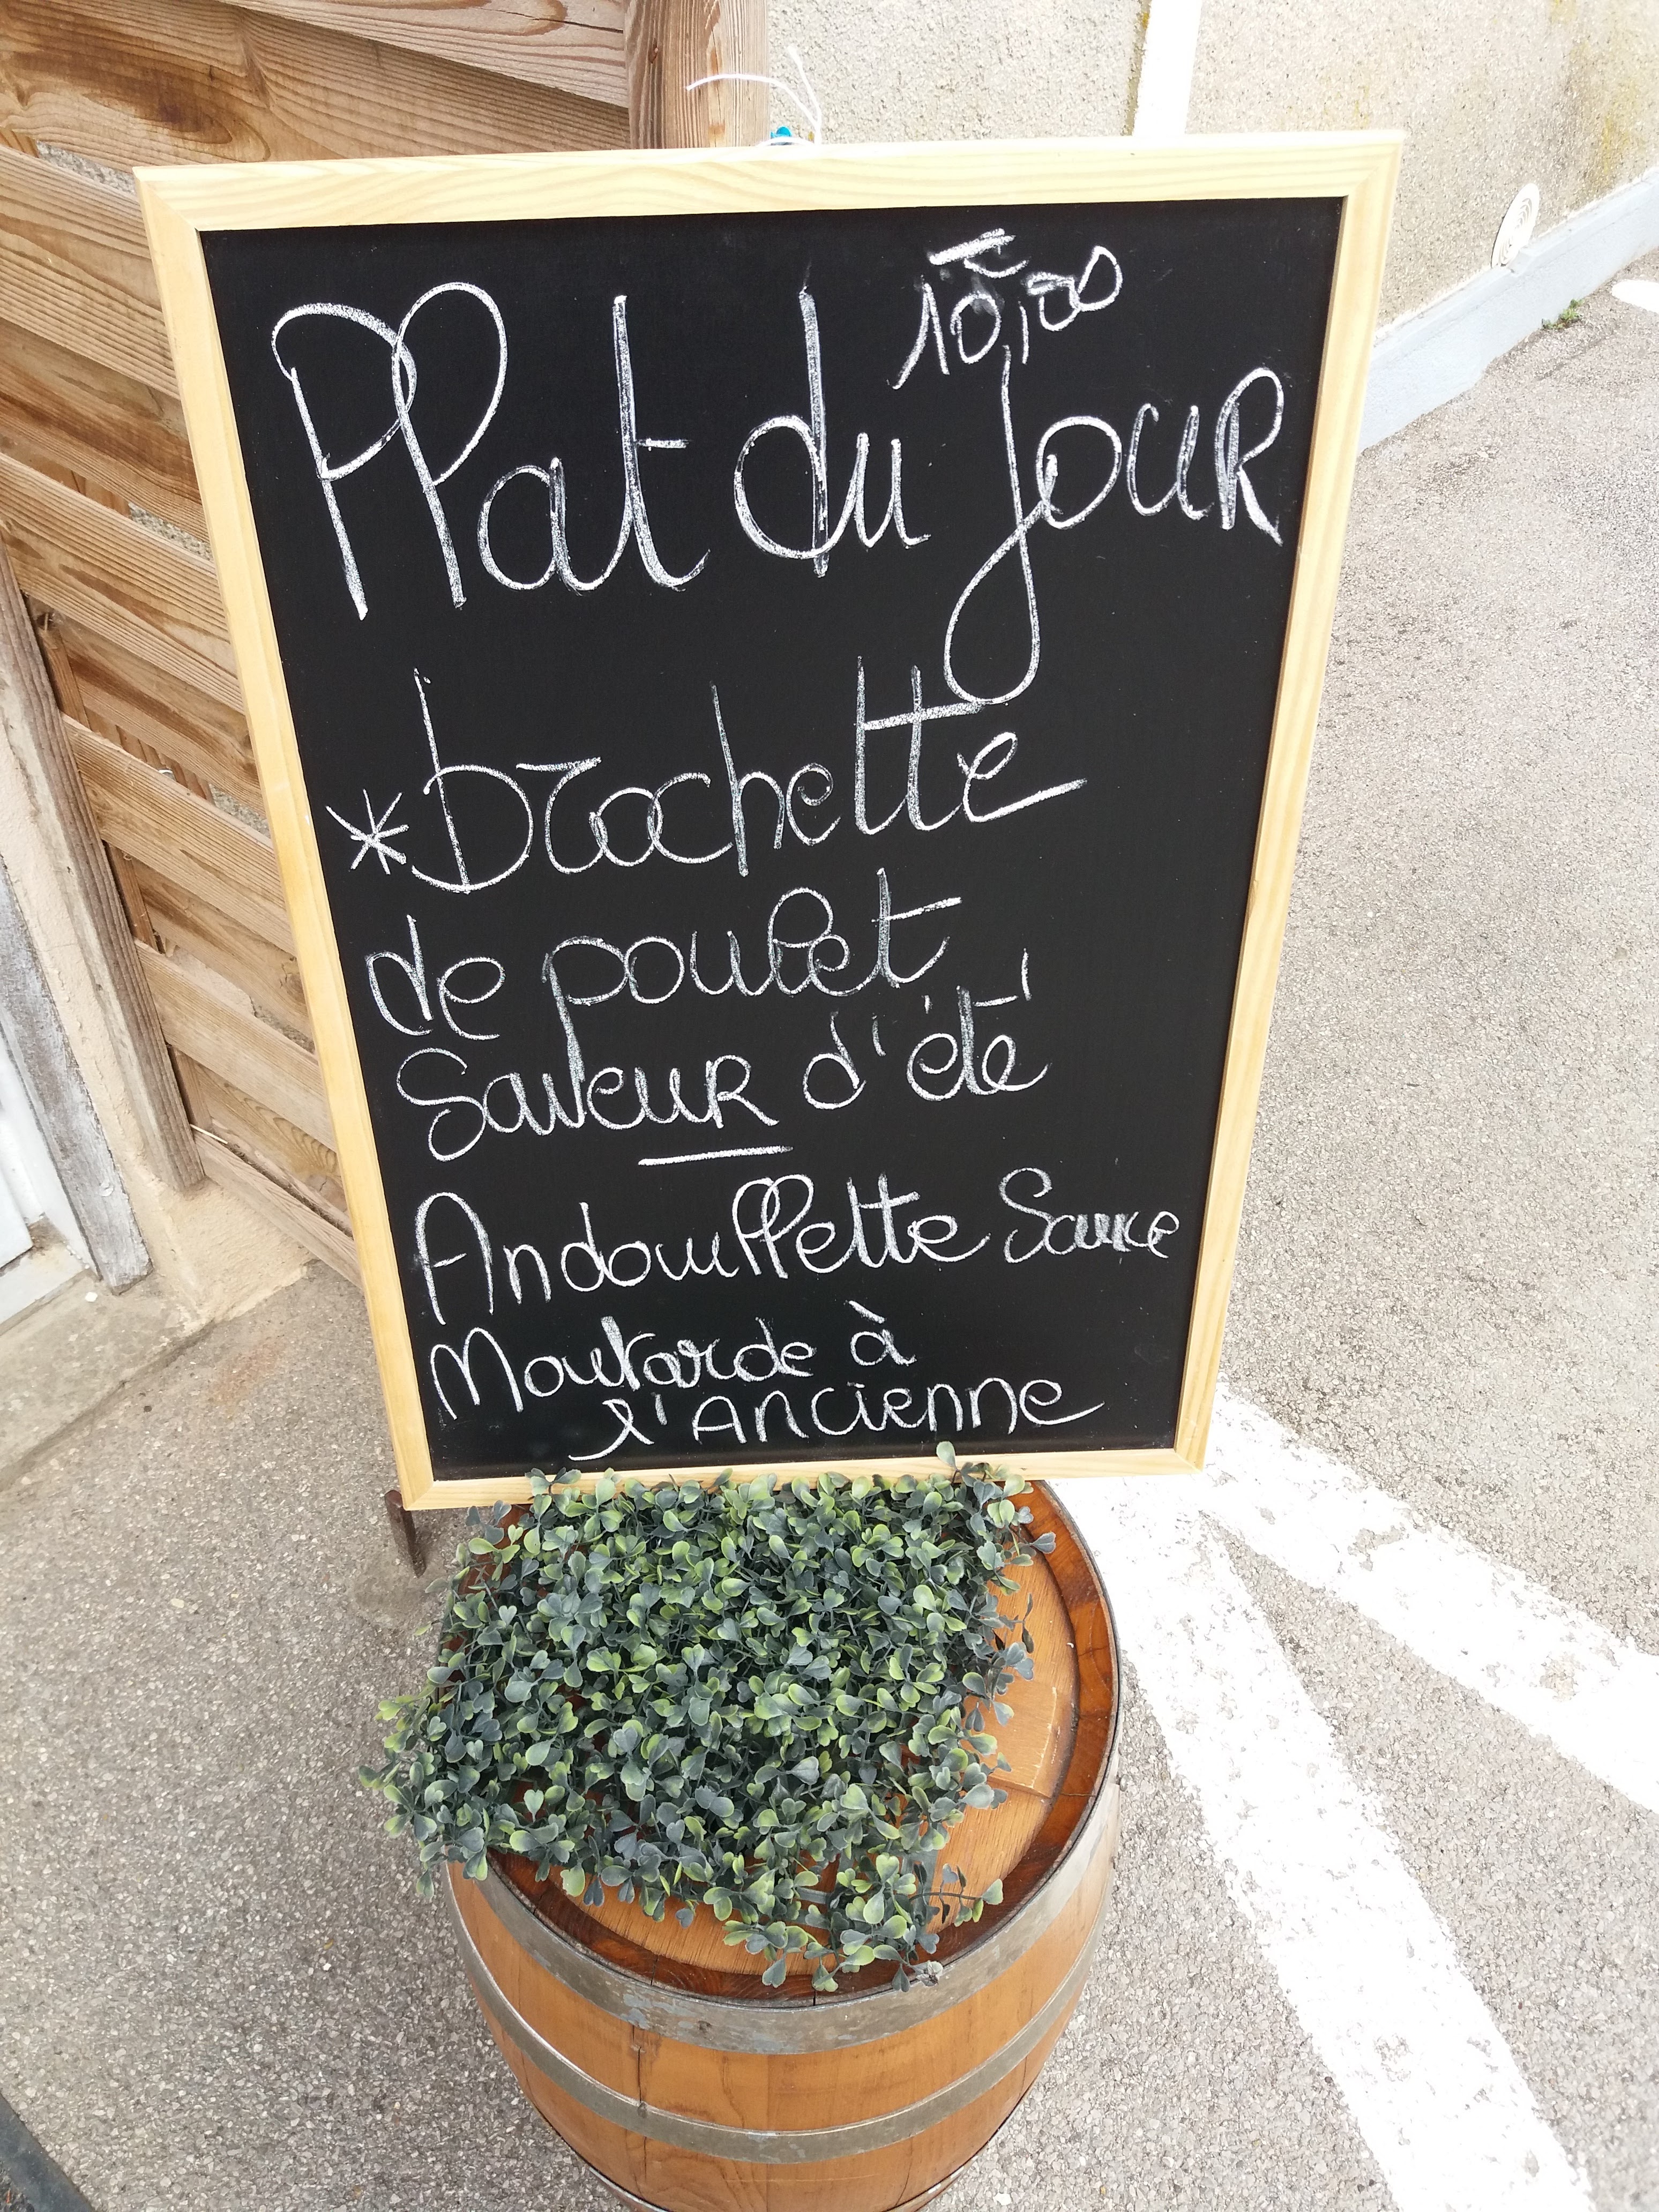 10,00
Plat du jour
* brochette
de poulet
Saveur d'été
Andouillette Sauce
Moutarde à
l'Ancienne